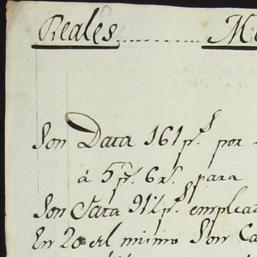 Reales
Son Data 161 p.s por
á 5 p.s 6 r.s para
Son Data 91 1/2 p.s emplea
En 20 del mismo Son Ca